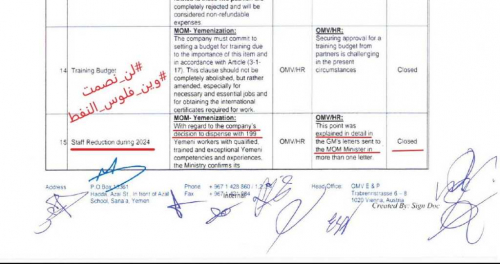 related to this position are
completely rejected and will be
considered non-refundable
expenses
14
Training Budget
MOM- Yemenization:
The company must commit to
setting a budget for training due
to the importance of this item and
in accordance with Article (3-1-
17). This clause should not be
completely abolished, but rather
amended, especially for
necessary and essential jobs and
for obtaining the international
certificates required for work.
OMV/HR
OMV/HR:
Securing approval for a
training budget from
partners is challenging
in the present
circumstances
Closed
#لن_نصمت
#وين_فلوس_النفط
15
Staff Reduction during 2024
MOM- Yemenization:
With regard to the company's
decision to dispense with 199
Yemeni workers with qualified,
trained and exceptional Yemeni
competencies and experiences,
the Ministry confirms its
OMV/HR
OMV/HR:
This point was
explained in detail in
the GM's letters sent to
the MOM Minister in
more than one letter
Closed
Address
School, Sana'a, Yemen
Phone
Fax
Internal
Head Office:
OMV E & P
Trabrennstrasse 6 – 8
1020 Vienna, Austria
Created By: Sign Doc